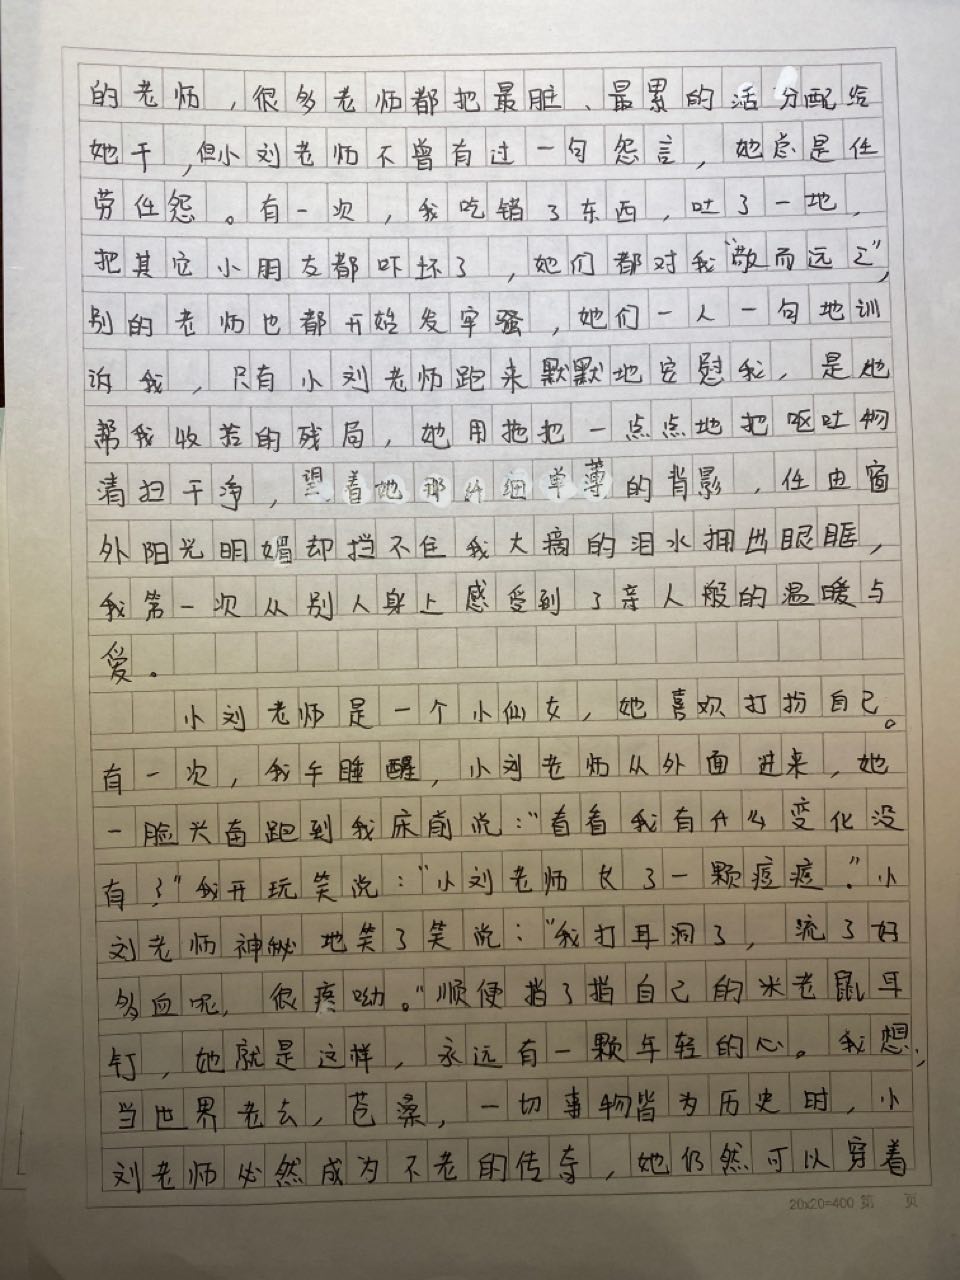 的老师，很多老师都把最脏、最累的活分配给
她干，但小刘老师不曾有过一句怨言，她总是任
劳任怨。有一次，我吃错了东西，吐了一地，
把其它小朋友都吓坏了，她们都对我“敬而远之”，
别的老师也都开始发牢骚，她们一人一句地训
诉我，只有小刘老师跑来默默地安慰我，是她
帮我收拾的残局，她用拖把一点点地把呕吐物
清扫干净，望着她那片细单薄的背影，任由窗
外阳光明媚却挡不住我大滴的泪水拥出眼眶，
我第一次从别人身上感受到了亲人般的温暖与
爱。
小刘老师是一个小仙女，她喜欢打扮自己。
有一次，我午睡醒，小刘老师从外面进来，她
一脸兴奋跑到我床前说：“看看我有什么变化没
有？”我开玩笑说：“小刘老师长了一颗痘痘。”小
刘老师神秘地笑了笑说：“我打耳洞了，流了好
多血呢，很疼呦。”顺便指了指自己的米老鼠耳
钉，她就是这样，永远有一颗年轻的心。我想，
当世界老去，苍桑，一切事物皆为历史时，小
刘老师必然成为不老的传奇，她仍然可以穿着
20x20=400 第 页